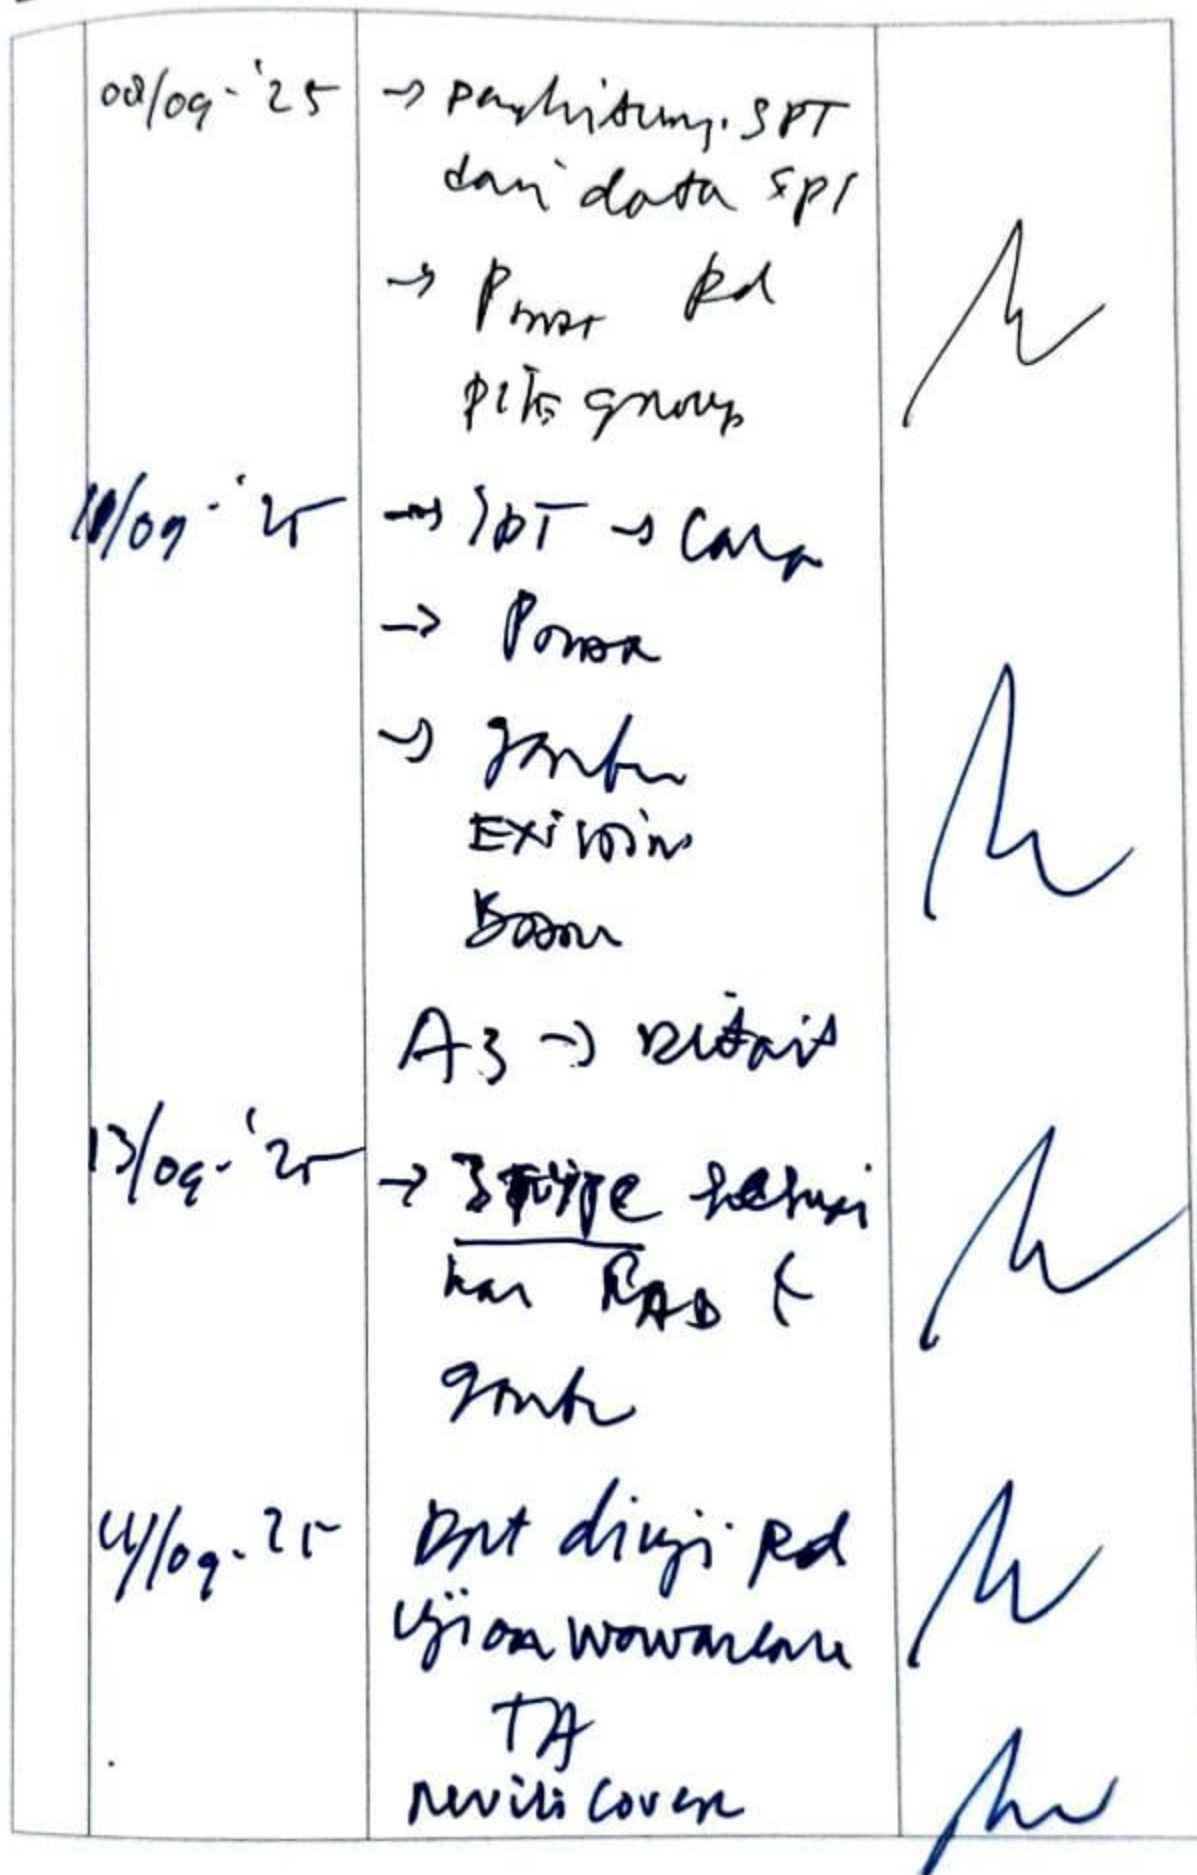 08/09-'25 → penghitung. SPT
dari data SPT
→ Pmax Pd
pile group
/09-'25 → SPT → Cara
→ Pmax
→ gambar
Existing
A3 → Detail
13/09-'25 → 3 type
kan RAB &
gambar
/09-25 Dpt diuji pd
ujian wawancara
TA
revisi cover